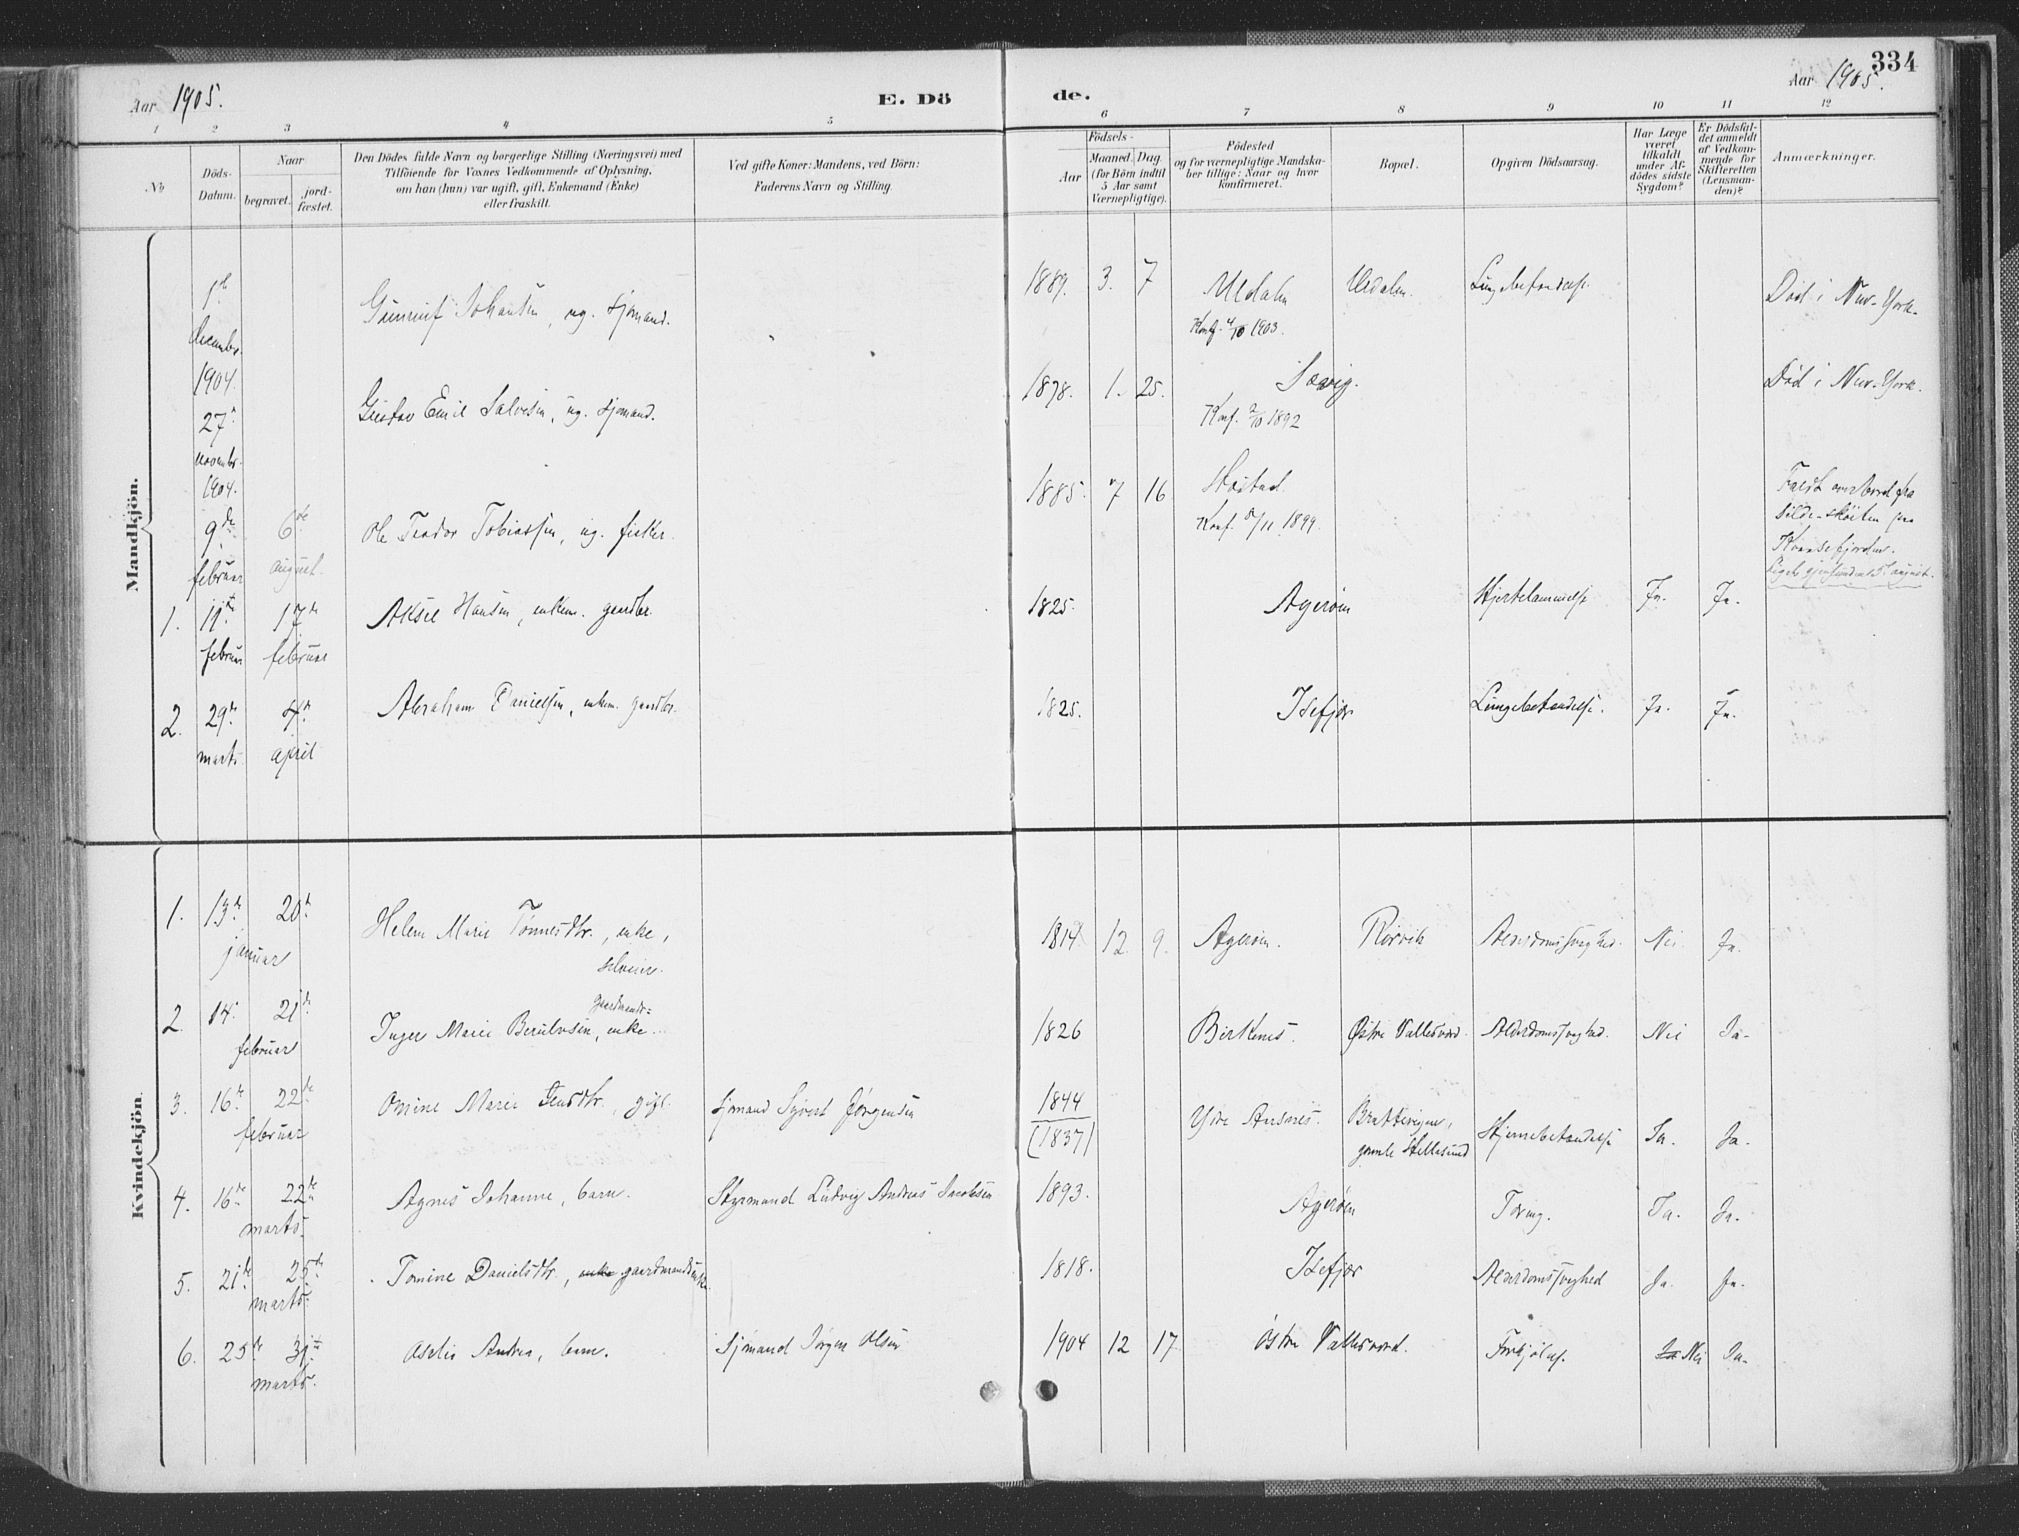 334
Aar 1905.
E. Dö
de.
Aar 1905.
1 2 3 4 5 6 7 8 9 10 11 12
No
Döds-Datum.
Naar
begravet.
jord-fæstet.
Den Dödes fulde Navn og borgerlige Stilling (Næringsvei) med
Tilföiende for Voxnes Vedkommende af Oplysning,
om han (hun) var ugift, gift, Enkemand (Enke)
eller fraskilt.
Ved gifte Koner: Mandens, ved Börn:
Faderens Navn og Stilling.
Födsels-
Aar
Maaned. Dag
(for Börn indtil
5 Aar samt
Værnepligtige).
Födested
og for værnepligtige Mandska-
ber tillige: Naar og hvor
konfirmeret.
Bopæl.
Opgiven Dödsaarsag.
Har Læge
været
tilkaldt
under Af-
dödes sidste
Sygdom?
Er Dödsfal-
det anmeldt
af Vedkom-
mende for
Skifteretten
(Lensman-
den)?
Anmærkninger.
Mandkjön.
1ste decembr. 1904. Johansen, ug. sjømand. 1889. 3. 7 Lungebetændelse. Død i New-York.
Konf. 4/10 1903.
27de novembr. 1904. Gustav Emil Salvesen, ug. sjømand. 1878. 1. 25. Død i New-York.
Konf. 2/10 1892
9de februar 6te august. Ole Teodor Tobiassen, ug. fisker. 1885. 7 16 Høstad.
Konf. 5/11 1899.
Faldt overbord fra
silde-skøiten paa
1. 11te februar 17de februar Aksel Hansen, enkem. gaardbr. 1825. Agerøen Hjertelammelse Ja. Ja.
2. 29de marts 4de april Abraham Danielsen, enkem. gaardbr. 1825. Isefjær Lungebetændelse. Ja. Ja.
Kvindekjön.
1. 13de 20de januar Helene Marie Tønnesdtr., enke, 1814. 12. 9. Agerøen. Rørvik Alderdomssvaghed. Nei Ja.
2. 14. 21de februar Inger Marie Berulvsen, gaardmands-enke. 1826 Birkenes. Østre Vallesværd. Alderdomssvaghed. Nei Ja.
3. 16de 22de februar Omine Marie Jensdtr., gift. Sjømand Syvert Jørgensen 1844 (1837) Ydre Aasnes. Brattevigen, gamle Hellesund Hjernebetændelse Ja. Ja.
4. 16de 22de marts. Agnes Johanne, barn. Styrmand Ludvig Andreas Jacobsen 1893. Agerøen Tæring. Ja. Ja.
5. 21de 25de marts. Tomine Danielsdtr., enke gaardmandsenke. 1818. Isefjær Alderdomssvaghed Ja. Ja.
6. 25de 31te marts. Aslene Andrea, barn. Sjømand Jørgen Olsen 1904 12 17. Østre Vallesværd. Forkjølelse. Ja Nei Ja.